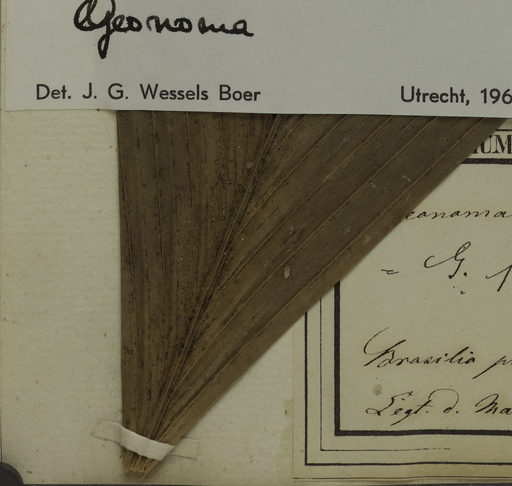 Geonoma
Det. J. G. Wessels Boer
Utrecht, 196
UM
eonoma
= G.
Brasilia
Legt. d. Ma